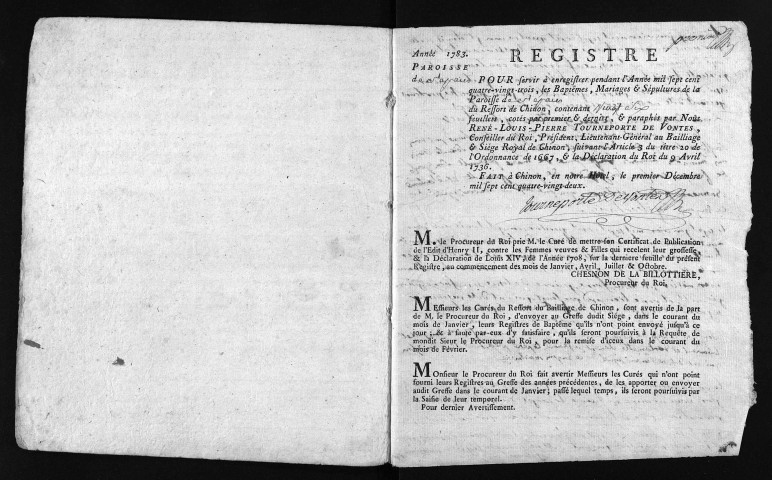 Année 1783.
REGISTRE
PAROISSE
POUR servir à enregistrer pendant l'Année mil sept cent
quatre-vingt-trois, les Baptêmes, Mariages & Sépultures de la
Paroisse de
du Ressort de Chinon, contenant
feuillets, cotés par premier & dernier, & paraphés par Nous
RENÉ-LOUIS-PIERRE TOURNEPORTE DE VONTES,
Conseiller du Roi, Président, Lieutenant-Général au Bailliage
& Siége Royal de Chinon, suivant l'Article 3 du titre 20 de
l'Ordonnance de 1667, & la Déclaration du Roi du 9 Avril
1736.
FAIT à Chinon, en notre Hôtel, le premier Décembre
mil sept cent quatre-vingt-deux.
Tourneporte Devontes
M. le Procureur du Roi prie M. le Curé de mettre son Certificat de Publication
de l'Edit d'Henry II, contre les Femmes veuves & Filles qui recelent leur grossesse,
& la Déclaration de Louis XIV, de l'Année 1708, sur la derniere feuille du présent
Registre, au commencement des mois de Janvier, Avril, Juillet & Octobre.
CHESNON DE LA BILLOTTIERE,
Procureur du Roi.
MEssieurs les Curés du Ressort du Bailliage de Chinon, sont avertis de la part
de M. le Procureur du Roi, d'envoyer au Greffe dudit Siége, dans le courant du
mois de Janvier, leurs Registres de Baptême qu'ils n'ont point envoyé jusqu'à ce
jour; & à faute par eux d'y satisfaire, qu'ils seront poursuivis à la Requête de
mondit Sieur le Procureur du Roi, pour la remise d'iceux dans le courant du
mois de Février.
MOnsieur le Procureur du Roi fait avertir Messieurs les Curés qui n'ont point
fourni leurs Registres au Greffe des années précédentes, de les apporter ou envoyer
audit Greffe dans le courant de Janvier; passé lequel temps, ils seront poursuivis par
la Saisie de leur temporel.
Pour dernier Avertissement.